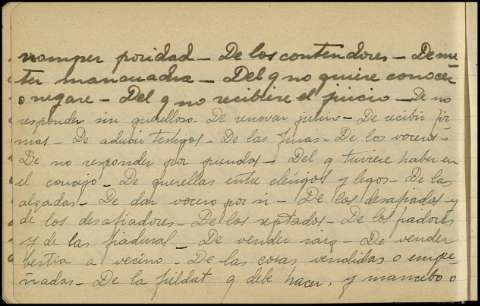 romper poridad — De los contendores — De me
ter mancuadra — Del q no quiere conocer
o negare — Del q no recibiere el juicio — De no
responder sin querelloso. De renovar juicio — De recibir fir
mas — De aducir testigos — De las juras — De los voceros —
De no responder por — Del q tuviere haber en
el concejo — De querellas entre clérigos y legos — De las
alzadas — De dar vocero por si — De los desafiados y
de los desafiadores — De los reptados — De los fiadores
y de las fiaduras — De vender raiz — De vender
bestia a vecino — De las cosas vendidas o empe
ñadas — De la q debe hacer, y mancebo o